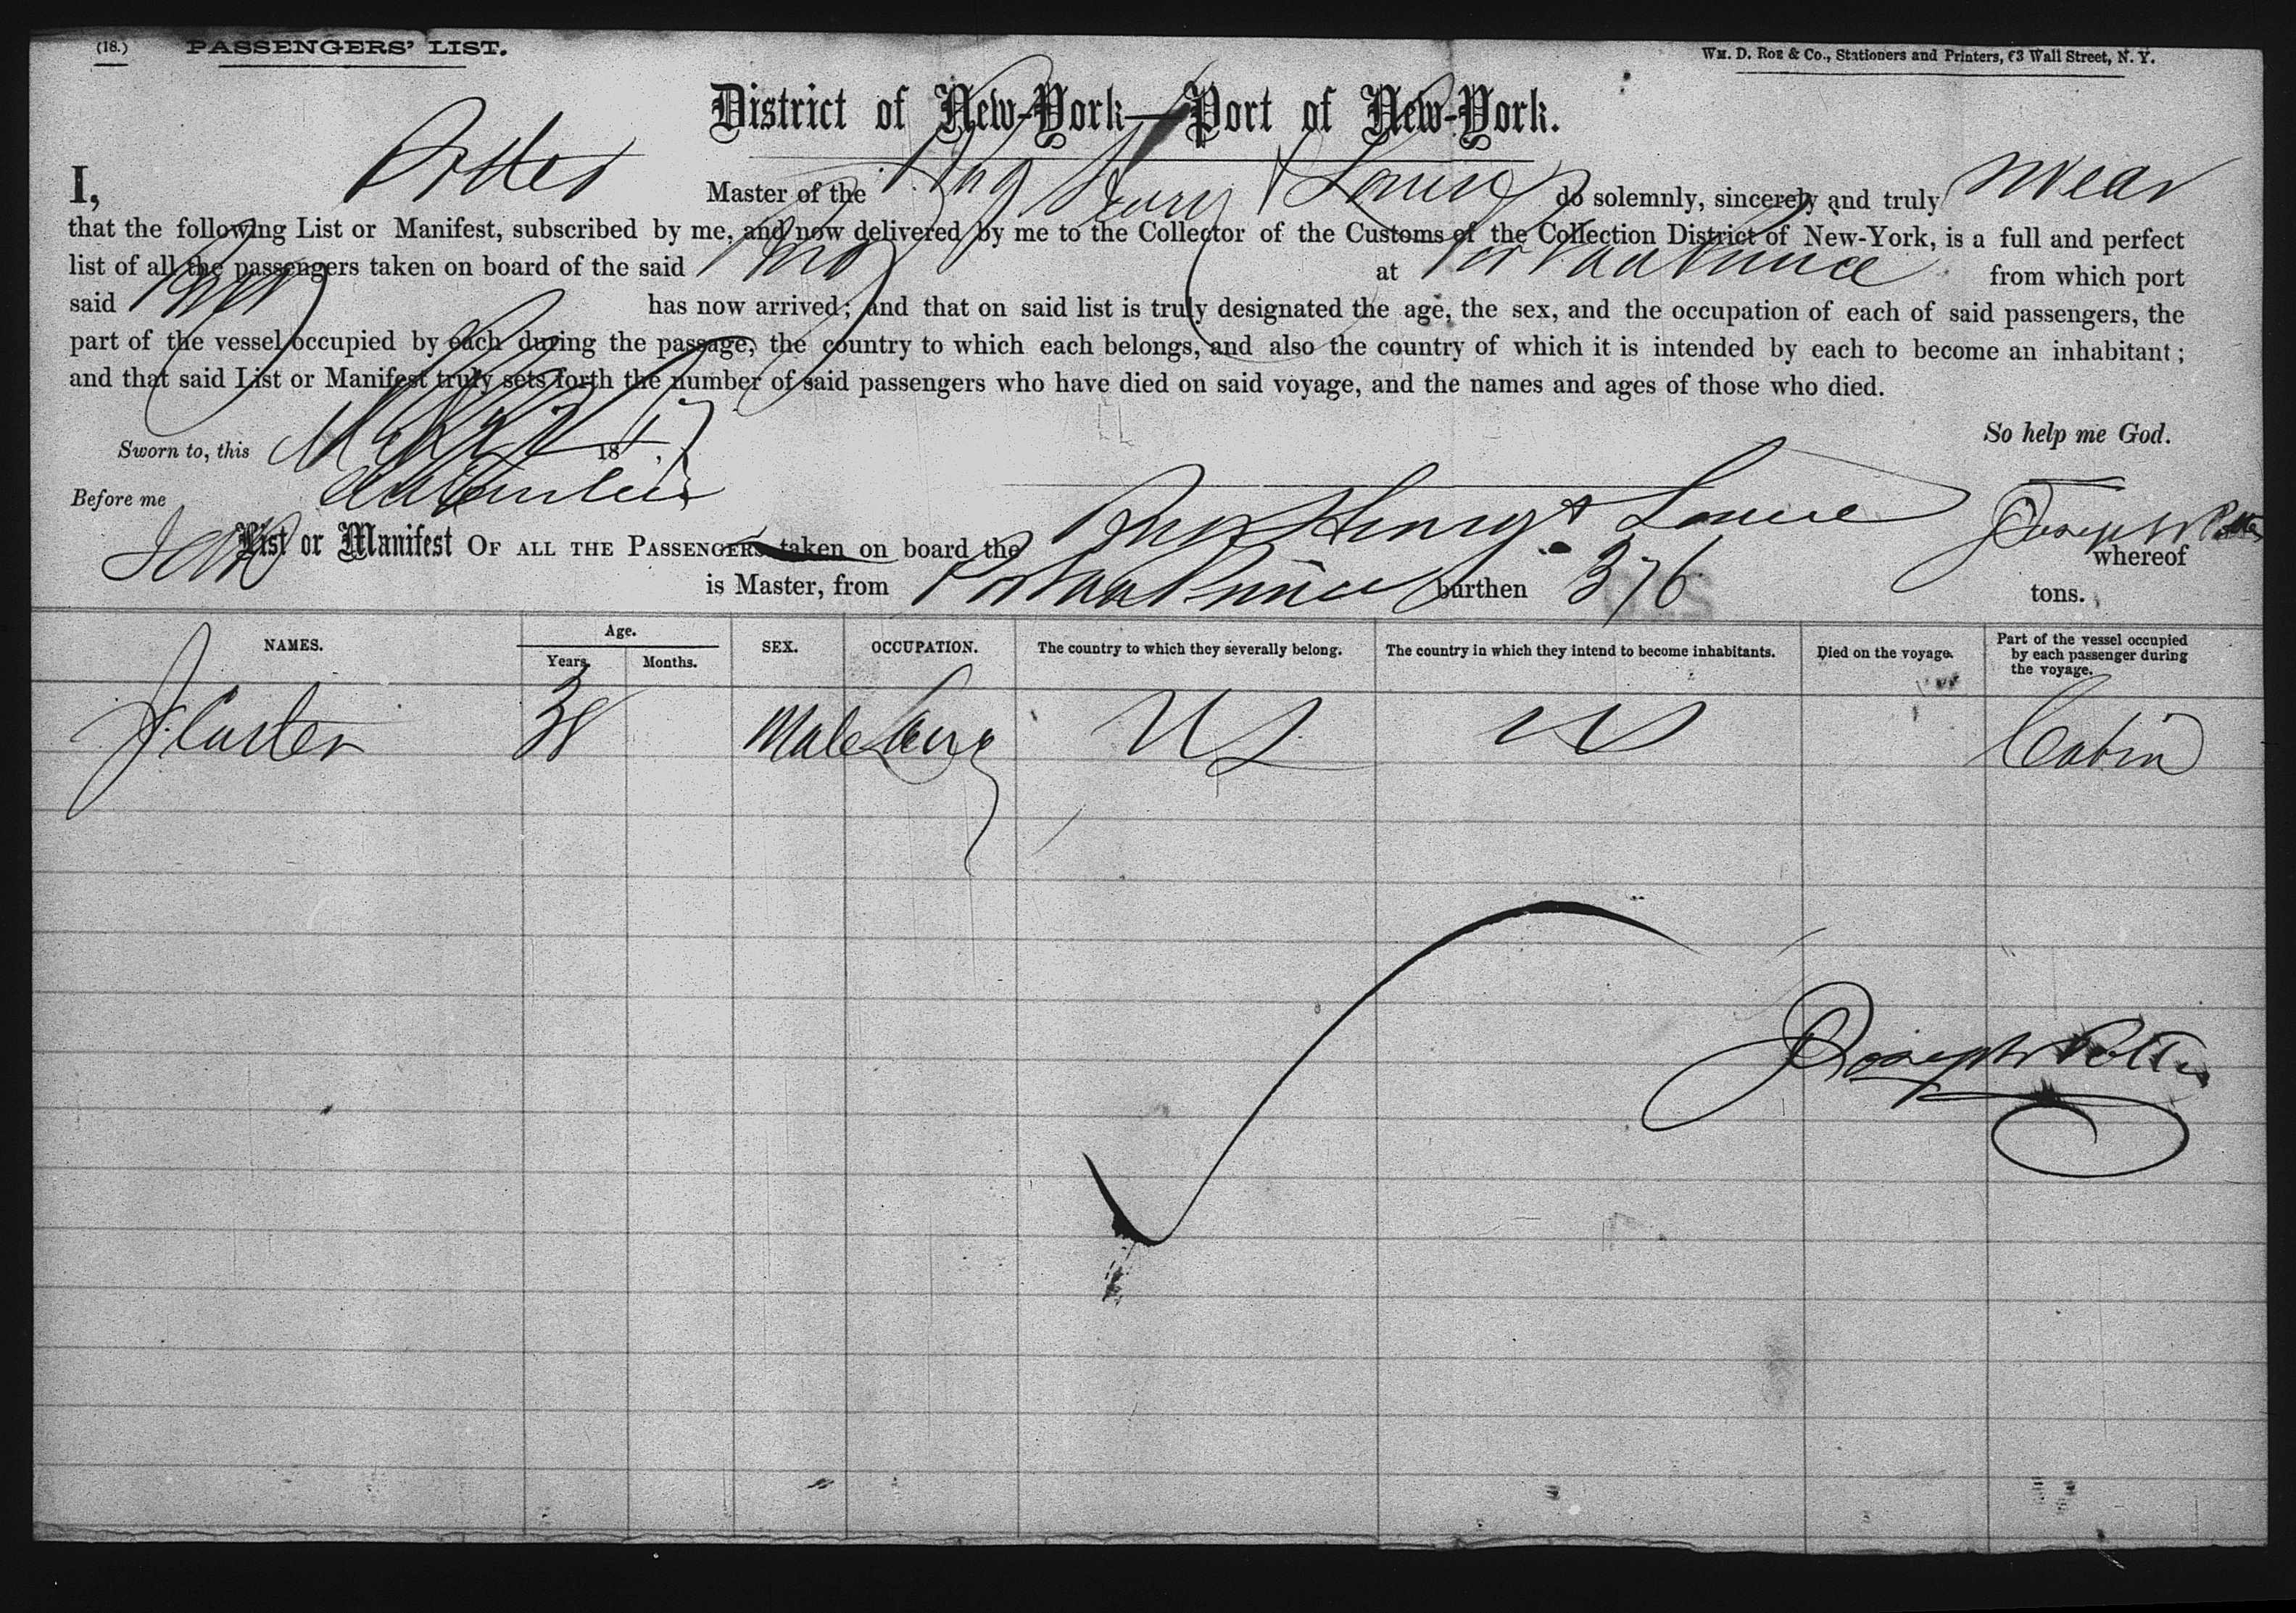 (18.) PASSENGERS' LIST. WM. D. ROE & Co., Stationers and Printers, 63 Wall Street, N. Y.
District of New-York—Port of New-York.
I, Potter Master of the Brig Henry & Louise do solemnly, sincerely and truly swear
that the following List or Manifest, subscribed by me, and now delivered by me to the Collector of the Customs of the Collection District of New-York, is a full and perfect
list of all the passengers taken on board of the said Brig at Port au Prince from which port
said Brig has now arrived; and that on said list is truly designated the age, the sex, and the occupation of each of said passengers, the
part of the vessel occupied by each during the passage, the country to which each belongs, and also the country of which it is intended by each to become an inhabitant;
and that said List or Manifest truly sets forth the number of said passengers who have died on said voyage, and the names and ages of those who died.
So help me God.
Sworn to, this 18
Before me
List or Manifest OF ALL THE PASSENGERS taken on board the Brig Henry & Louise Joseph Potter whereof
is Master, from Port au Prince burthen 376 tons.
NAMES. Age. Years. Months. SEX. OCCUPATION. The country to which they severally belong. The country in which they intend to become inhabitants. Died on the voyage. Part of the vessel occupied by each passenger during the voyage.
J. Carter 38 Male US US Cabin
Joseph Potter